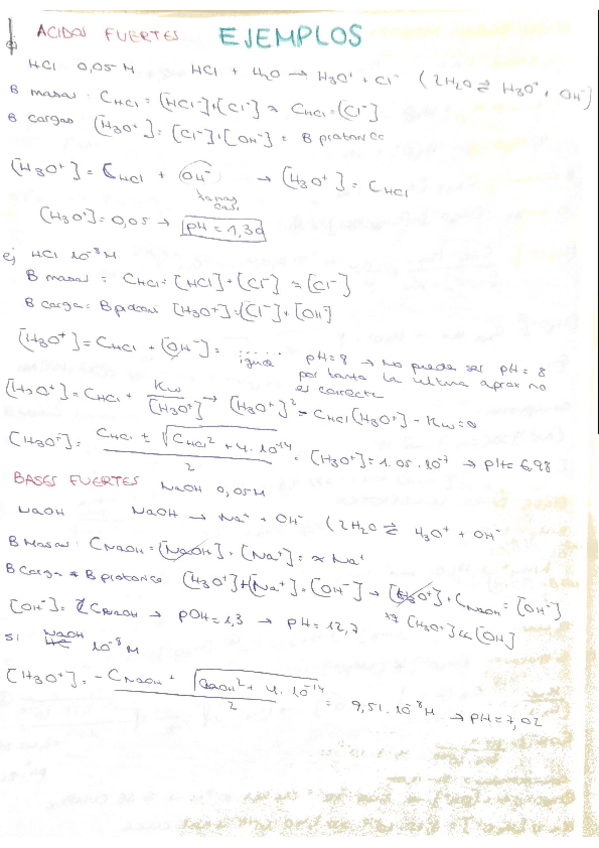 ACIDOS FUERTES EJEMPLOS
HCl 0,05 M HCl + H2O → H3O+ + Cl- (2H2O ⇌ H3O+ + OH-)
B masas: CHCl = [HCl] + [Cl-] ≈ CHCl = [Cl-]
B cargas [H3O+] = [Cl-] + [OH-] = B protonico
[H3O+] = CHCl + OH- → [H3O+] = CHCl
[H3O+] = 0,05 → pH = 1,30
ej HCl 10-8 M
B masas: CHCl = [HCl] + [Cl-] ≈ [Cl-]
B carga = B protoni [H3O+] = [Cl-] + [OH]
[H3O+] = CHCl + [OH-] = ...... igual pH = 8 → No puede ser pH = 8
por tanto la ultima aprox no
es correcta
[H3O+] = CHCl + Kw/[H3O+] → [H3O+]2 - CHCl [H3O+] - Kw = 0
[H3O+] = CHCl ± √CHCl2 + 4. 10-14 / 2 = [H3O+] = 1.05. 10-7 → pH = 6,98
BASES FUERTES NaOH 0,05 M
NaOH NaOH → Na+ + OH- (2H2O ⇌ H3O+ + OH-
B Masas: CNaOH = [NaOH] + [Na+] = ≈ Na+
B Carga = B protonico [H3O+] + [Na+] = [OH-] → [H3O+] + CNaOH = [OH-]
[OH-] = CNaOH → pOH = 1,3 → pH = 12,7 [H3O+] << [OH]
si NaOH 10-8 M
[H3O+] = -CNaOH + √CNaOH2 + 4. 10-14 / 2 = 9,51. 10-8 M → pH = 7,02